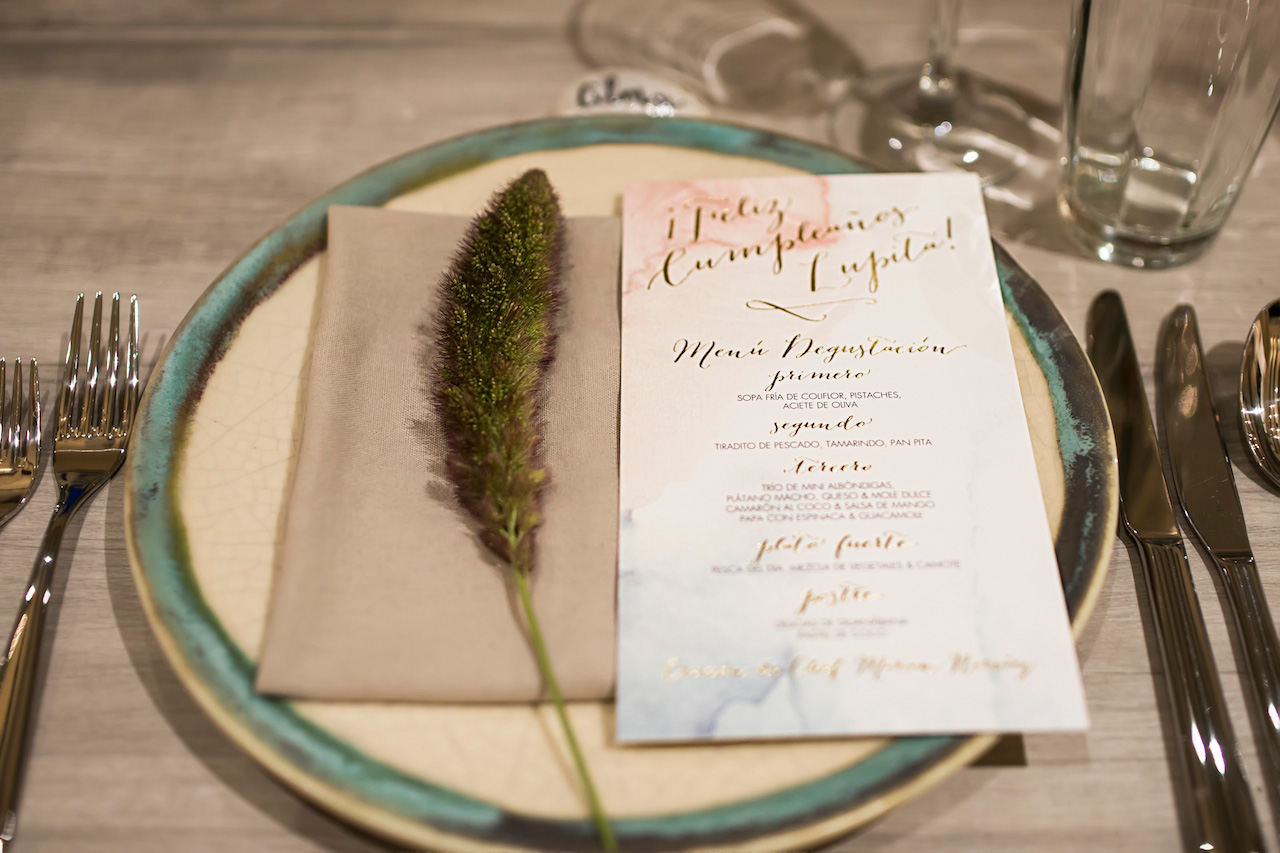 ¡Feliz
Cumpleaños
Lupita!
Menú Degustación
primero
SOPA FRÍA DE COLIFLOR, PISTACHES,
ACIETE DE OLIVA
segundo
TIRADITO DE PESCADO, TAMARINDO, PAN PITA
tercero
TRÍO DE MINI ALBÓNDIGAS,
PLÁTANO MACHO, QUESO & MOLE DULCE
CAMARÓN AL COCO & SALSA DE MANGO
PAPA CON ESPINACA & GUACAMOLE
plato fuerte
PESCA DEL DÍA, MEZCLA DE VEGETALES & CAMOTE
postre
DE
PASTEL DE COCO
de Chef